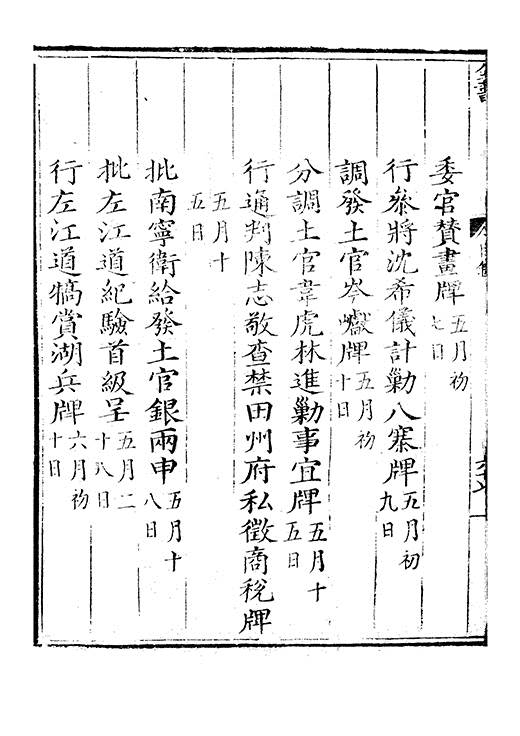 委官賛畫牌五月初七日
行叅將沈希儀計勦八寨牌五月初九日
調發土官岑𤩽牌五月初十日
分調土官韋虎林進勦事宜牌五月十五日
行通判陳志敬查禁田州府私徵商稅牌
五月十五日
批南寧衛給發土官銀兩申五月十八日
批左江道紀驗首級呈五月二十八日
行左江道犒賞湖兵牌六月初十日